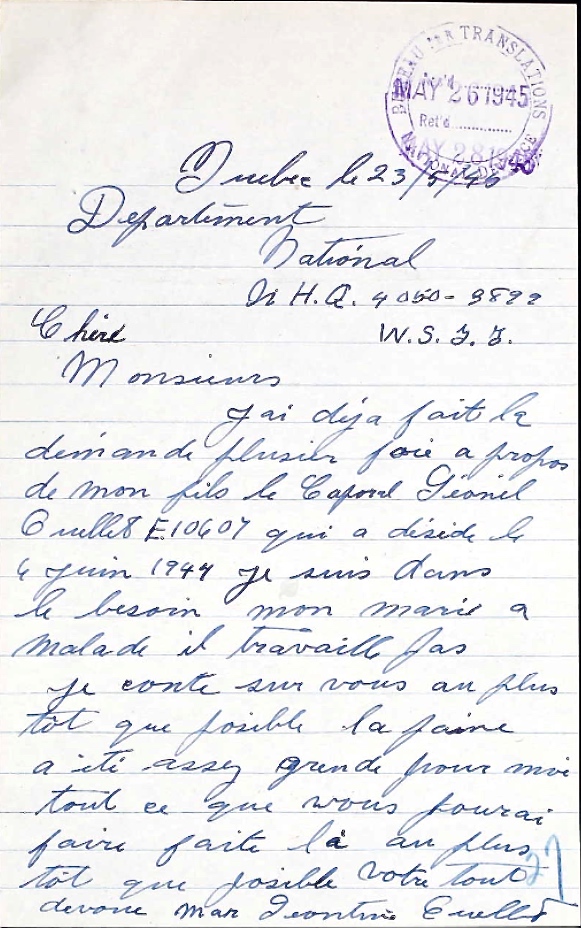 BUREAU for TRANSLATIONS
Rec'd
MAY 26 1945
Ret'd
MAY 28 1945
NATIONAL DEFENCE
Quebec le 23/5/45
Departement
National
N H.Q. 4050-9899
W.S.
Chère
Monsieurs
J'ai déja fait la
demande plusier foie a propos
de mon fils le Caporal
Ouellet E.10607 qui a déside le
6 juin 1944 je suis dans
le besoin mon marie a
malade il travaille pas
je conte sur vous au plus
tôt que posible la paine
a été assez grende pour moi
tout ce que vous pourai
faire faite la au plus
tôt que posible votre tout
devoue Ouellet
27